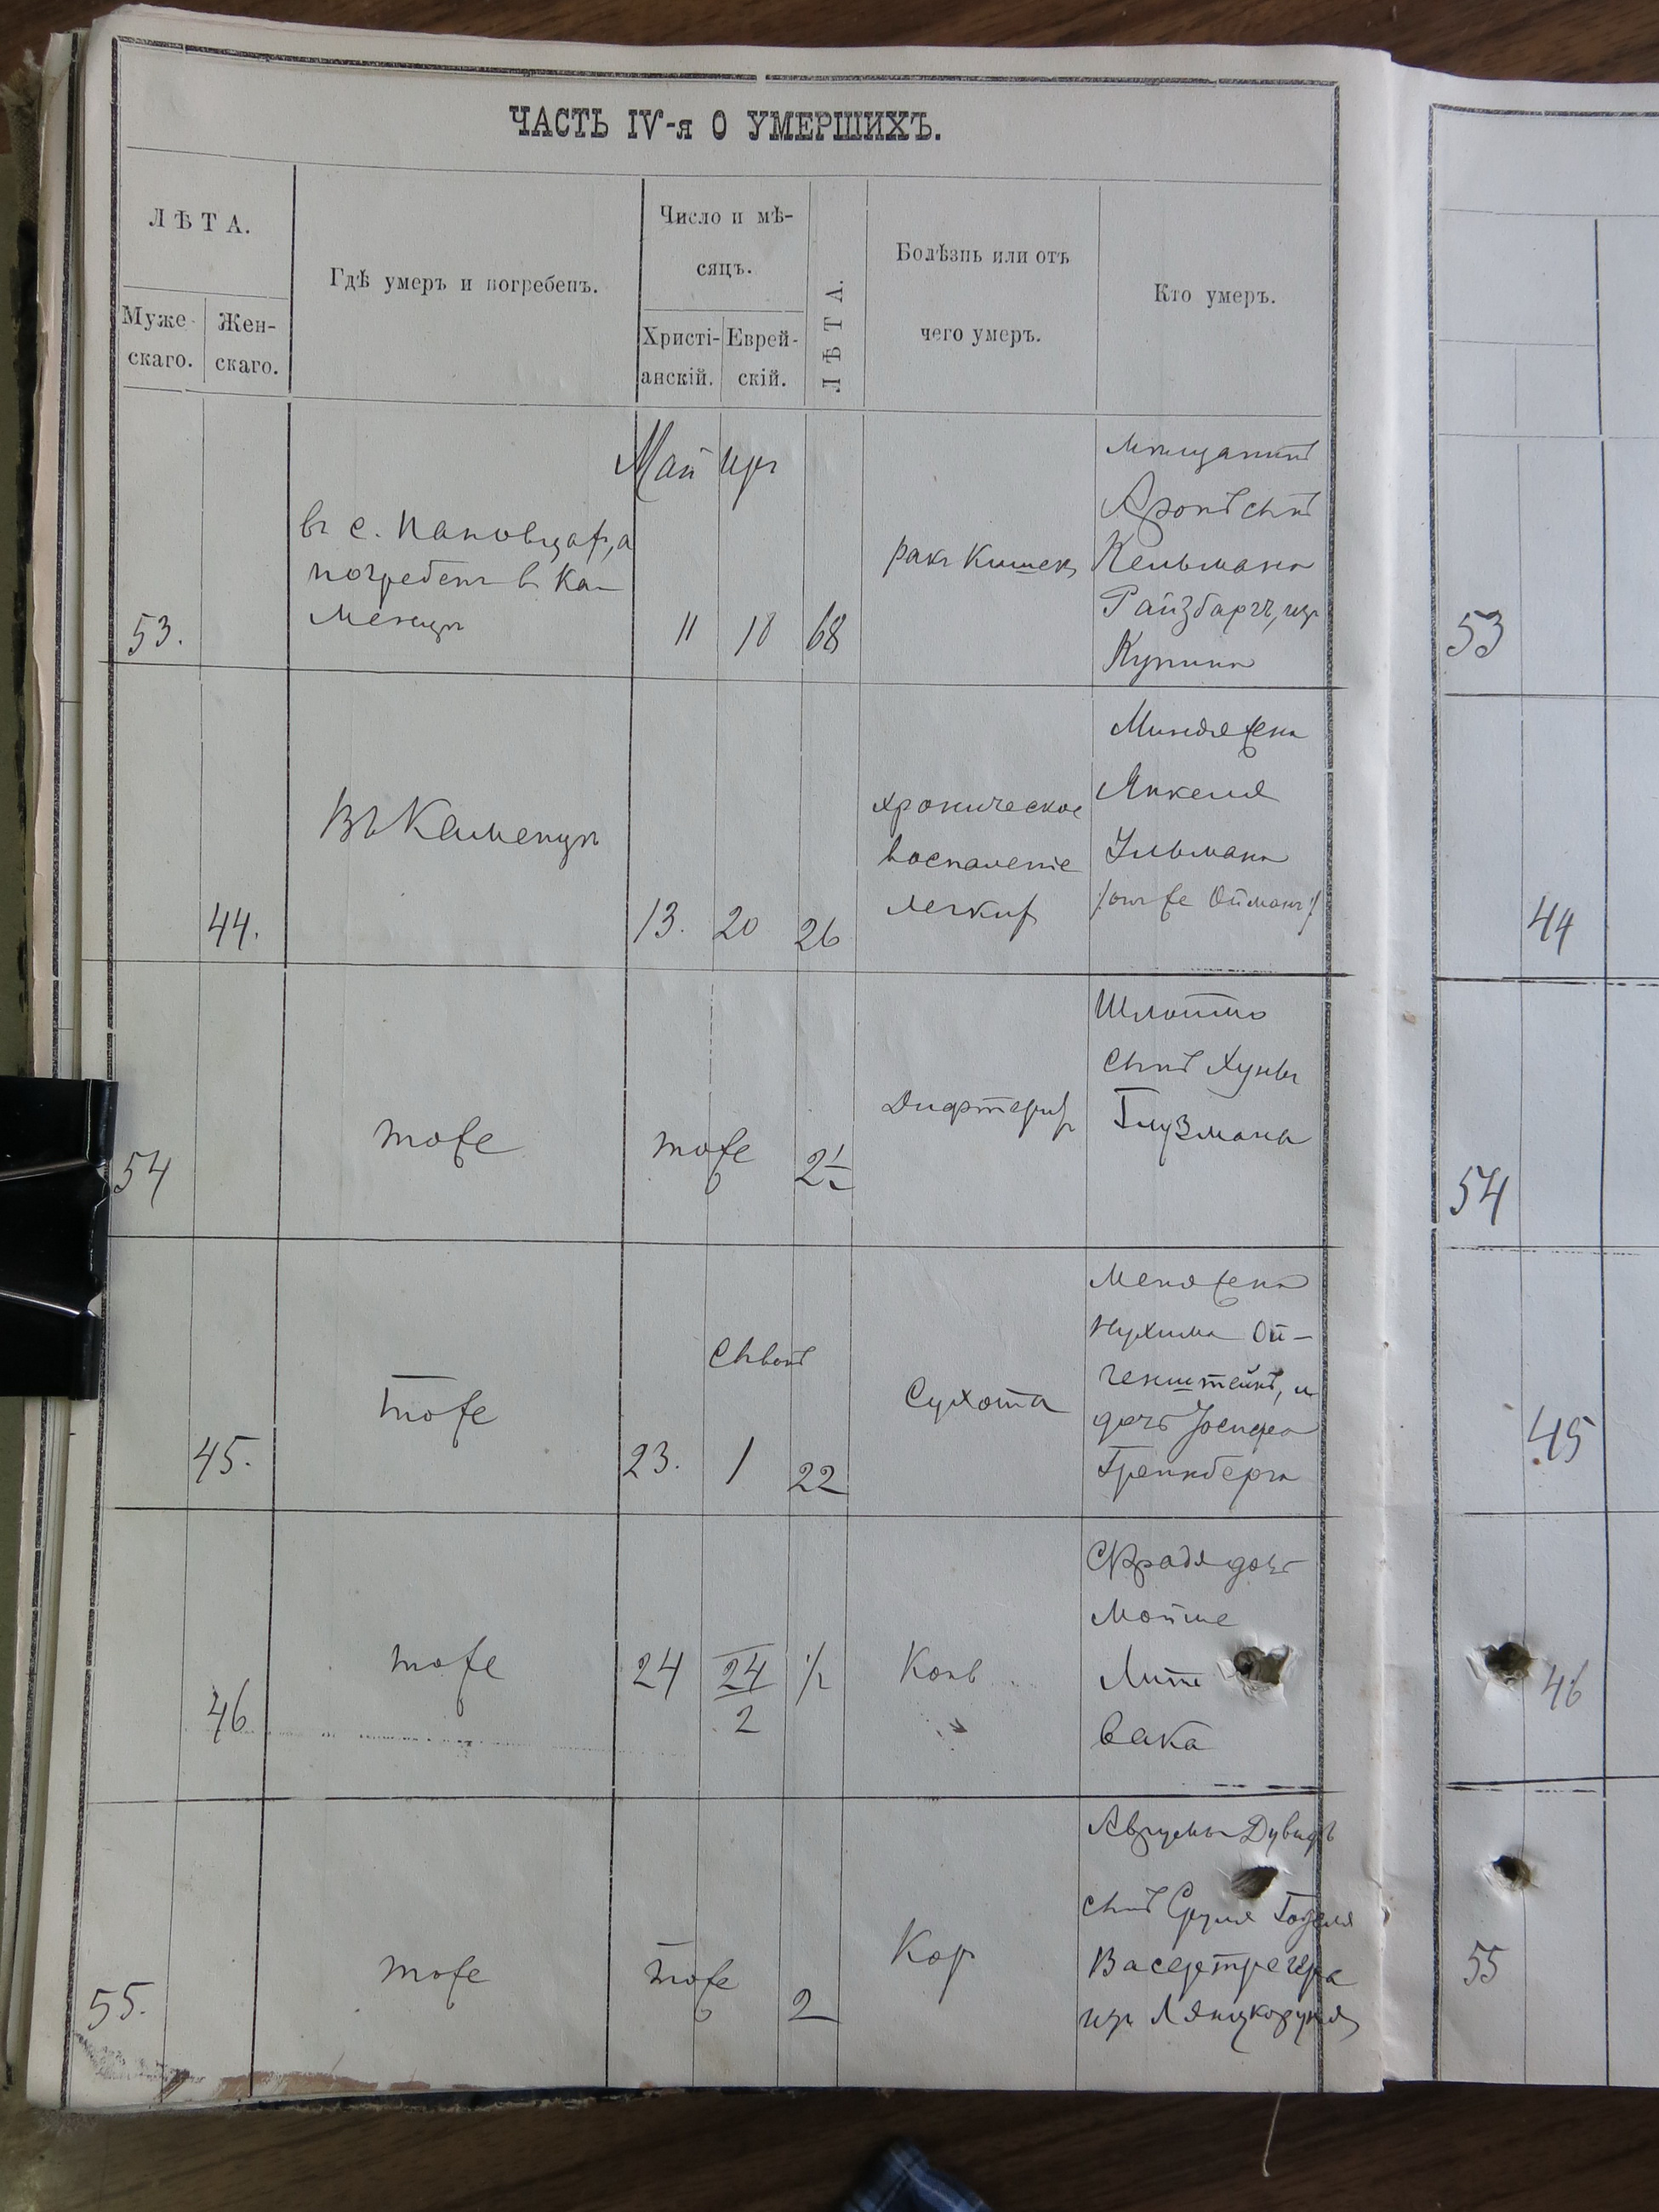 ЧАСТЬ IV-я О УМЕРШИХЪ.
ЛѢТА.
Муже-
скаго.
Жен-
скаго.
Гдѣ умеръ и погребенъ.
Число и мѣ-
сяцъ.
Христі-
анскій.
Еврей-
скій.
ЛѢТА.
Болѣзнь или отъ
чего умеръ.
Кто умеръ.
Май Иръ
53.
въ с. Пановцахъ, а
погребенъ въ Ка-
менцѣ
11 18 68
ракъ кишекъ
мѣщанинъ
Аронъ сынъ
Кельмана
Райзбаргъ, изъ
Купина
53
44.
Въ Каменцѣ
13. 20 26
хроническое
воспаленіе
легкихъ
Миндя жена
Янкеля
Ульмана
/:онъ же Ойманъ:/
44
54
тоже
тоже 2½
Дифтеритъ
Шлойма
сынъ Хуны
Глузмана
54
45.
тоже
Сывонъ
23. 1 22
Сухота
жена
Нухима Ой-
генштейнъ, и
дочь Іосифа
Гринберга
45
46
тоже
24 24
2
½
Конв
дочь
Мойше
Лит
вака
46
55.
тоже
тоже 2
Кор
Аврумъ Дувидъ
сынъ Сруля
изъ Лянцкоруня
55